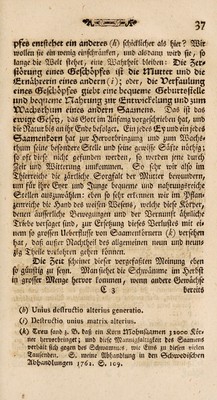 37
pfes entstehet ein anderes (h) schicklicher als hier? Wir
wollen sie ein wenig einschränken, und alsdann wird sie, so
lange die Welt stehet, eine Wahrheit bleiben: Die Zer-
störung eines Geschöpfes ist die Mutter und die
Ernährerin eines andern (i); oder, die Verfaulung
eines Geschöpfes giebt eine bequeme Geburtsstelle
und bequeme Nahrung zur Entwickelung und zum
Wachsthum eines andern Saamens. Das ist das
ewige Gesetz, das Gott im Anfang vorgeschrieben hat, und
die Natur bis an ihr Ende befolget. Ein jedes Ey und ein jedes
Saamenkorn hat zur Hervorbringung und zum Wachs-
thum seine besondere Stelle und seine gewisse Säfte nöthig;
so oft diese nicht gefunden werden, so werden sie durch
Zeit und Witterung umkommen. So sehr wir also im
Thierreiche die zärtliche Sorgfalt der Mütter bewundern,
um für ihre Eyer und Junge bequeme und nahrungsreiche
Stellen auszuwählen: eben so sehr erkennen wir im Pflan-
zenreiche die Hand des weisen Wesens, welche diese Körper,
denen äusserliche Bewegungen und der Vernunft ähnliche
Triebe versaget sind, zur Ersetzung dieses Verlustes mit ei-
nem so grossen Ueberflusse von Saamenkörnern (k) versehen
hat, daß ausser Nachtheil des allgemeinen neun und neun-
zig Theile verlohren gehen können.
Die Zeit scheinet dieser vorgefaßten Meinung eben
so günstig zu seyn. Man siehet die Schwämme im Herbst
in grosser Menge hervor kommen, wenn andere Gewächse
C 3 bereits
(h) Unius destructio alterius generatio.
(i) Destructio unius matrix alterius.
(k) Treu fand z. B. daß ein Kern Mohnsaamen 32000 Kör-
ner hervorbringet; und diese Mannigfaltigkeit des Saamens
verhält sich gegen des Schwammes, wie Eins zu diesen vielen
Tausenden. S. meine Abhandlung in den Schwedischen
Abhandlungen 1762. S. 109.